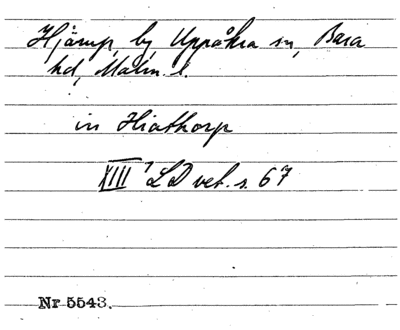 Hjärup, by, Uppåkra sn, Bara
hd, Malm. l.
in Hiathorp
XIII 1 LD vet. s. 67
Nr 5543.